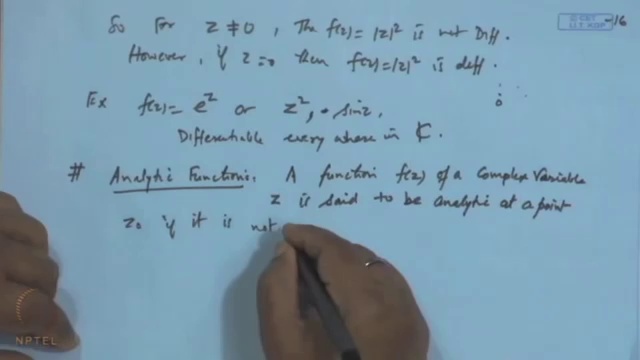 So For z ≠ 0, The f(z) = |z|² is not Diff.
However, if z = 0 then f(z) = |z|² is diff.
Ex f(z) = e^z or z², sin z,
Differentiable every where in ℂ.
# Analytic Functions: A function f(z) of a Complex Variable
z is said to be analytic at a point
z₀ if it is not
NPTEL